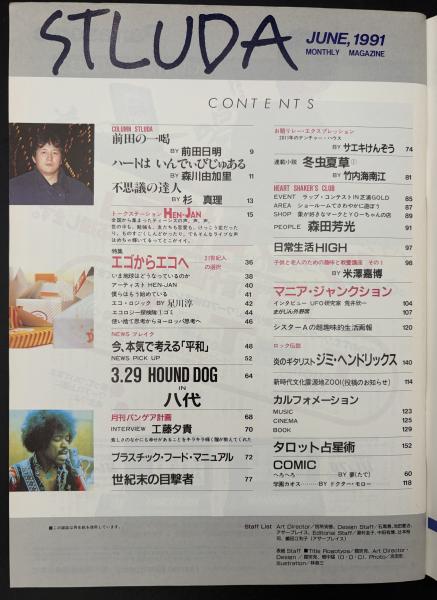 STLUDA
JUNE, 1991
MONTHLY MAGAZINE
CONTENTS
COLUMN STLUDA
前田の一喝
BY 前田日明 9
ハートは いんでぃびじゅある
BY 森川由加里 11
不思議の達人
BY 杉 真理 13
トークステーション HEN-JAN 15
特集
エゴからエコへ 21世紀人の選択 36
いま地球はどうなっているのか 38
アーティスト HEN-JAN 40
僕らはもう始めている 41
エコ・ロジック BY 足川淳 42
エコロジー探検隊!ゴミ 44
使い捨て思考からヨーロッパ思考へ 46
NEWS ブレイク
今、本気で考える「平和」 48
NEWS PICK UP 52
3.29 HOUND DOG 64
IN
八代
月刊パンゲア計画 68
INTERVIEW 工藤夕貴 70
プラスチック・フード・マニュアル 72
世紀末の目撃者 77
お題リレー・エクスプレッション
BY サエキけんぞう 74
連載小説 冬虫夏草①
BY 竹内海南江 81
HEART SHAKER'S CLUB
EVENT ラップ・コンテストIN芝浦GOLD 85
AREA ショールームでさわやかに遊ぼう 87
SHOP 象が好きなマークとYO一ちゃんの店 89
PEOPLE 森田芳光 91
日常生活HIGH 97
子供と老人のための趣味と教養講座 その1 98
BY 米澤嘉博
マニア・ジャンクション
インタビュー UFO研究家 荒井欣一 104
まがじん外野席 107
シスターAの超趣味的生活画報 120
ロック伝説
炎のギタリスト ジミ・ヘンドリックス 140
新時代文化震源地ZOO!(投稿のお知らせ) 114
カルフォメーション
MUSIC 123
CINEMA 125
BOOK 129
タロット占星術 152
COMIC
へろへろ BY 夢(たて) 60
学園カオス……BY ドクター・モロー 118
■この雑誌は再生紙を使用しています。